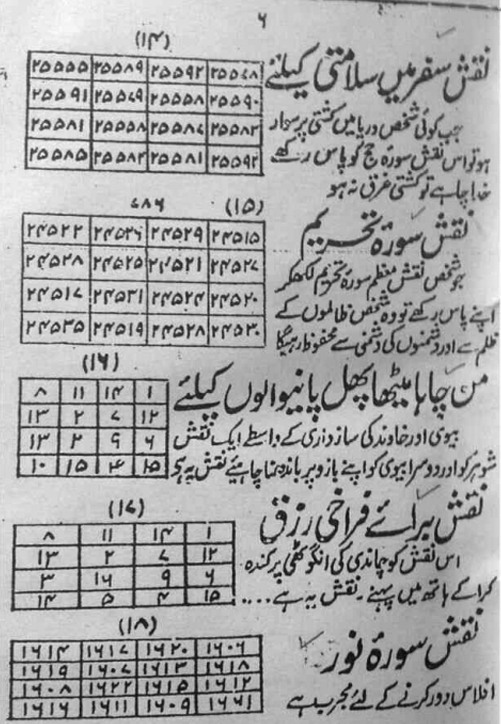 ۶
(۱۴)
نقش سفر میں سلامتی کیلئے
جب کوئی شخص دریا میں کشتی پر سوار
ہو تو اس نقش سورہ حج کو پاس رکھے
خدا چاہے تو کشتی غرق نہ ہو
۲۵۵۵۵ ۲۵۵۸۹ ۲۵۵۹۲ ۲۵۵۷۸
۲۵۵۹۱ ۲۵۵۷۹ ۲۵۵۵۸ ۲۵۵۹۰
۲۵۵۸۱ ۲۵۵۵۸ ۲۵۵۸۷ ۲۵۵۸۳
۲۵۵۸۵ ۲۵۵۸۳ ۲۵۵۸۱ ۲۵۵۹۲
(۱۵) ۷۸۶
نقش سورہ تحریم
جو شخص نقش معظم سورہ تحریم لکھکر
اپنے پاس رکھے تو وہ شخص ظالموں کے
ظلم سے اور دشمنوں کی دشمنی سے محفوظ رہیگا
۲۴۵۲۲ ۲۴۵۲۶ ۲۴۵۲۹ ۲۴۵۱۵
۲۴۵۲۸ ۲۴۵۲۵ ۲۴۵۲۱ ۲۴۵۲۷
۲۴۵۱۷ ۲۴۵۳۱ ۲۴۵۲۴ ۲۴۵۲۰
۲۴۵۳۵ ۲۴۵۱۹ ۲۴۵۲۸ ۲۴۵۳۰
(۱۶)
من چاہا میٹھا پھل پانیوالوں کیلئے
بیوی اور خاوند کی سازداری کے واسطے ایک نقش
شوہر کو اور دوسرا بیوی کو اپنے بازو پر باندھنا چاہیئے نقش یہ ہے
۸ ۱۱ ۱۴ ۱
۱۳ ۲ ۷ ۱۲
۱۳ ۲ ۹ ۶
۱۰ ۱۵ ۴ ۱۵
(۱۷)
نقش برائے فراخی رزق
اس نقش کو چاندی کی انگوٹھی پر کندہ
کرا کے ہاتھ میں پہنے۔ نقش یہ ہے ....
۸ ۱۱ ۱۴ ۱
۱۳ ۲ ۷ ۱۲
۳ ۱۶ ۹ ۶
۱۴ ۵ ۴ ۱۵
(۱۸)
نقش سورہ نور
افلاس دور کرنے کے لئے مجرب ہے
۱۶۱۴ ۱۶۱۷ ۱۶۲۰ ۱۶۰۶
۱۶۱۹ ۱۶۰۷ ۱۶۱۳ ۱۶۱۸
۱۶۰۸ ۱۶۲۲ ۱۶۱۵ ۱۶۱۲
۱۶۱۶ ۱۶۱۱ ۱۶۰۹ ۱۶۶۱